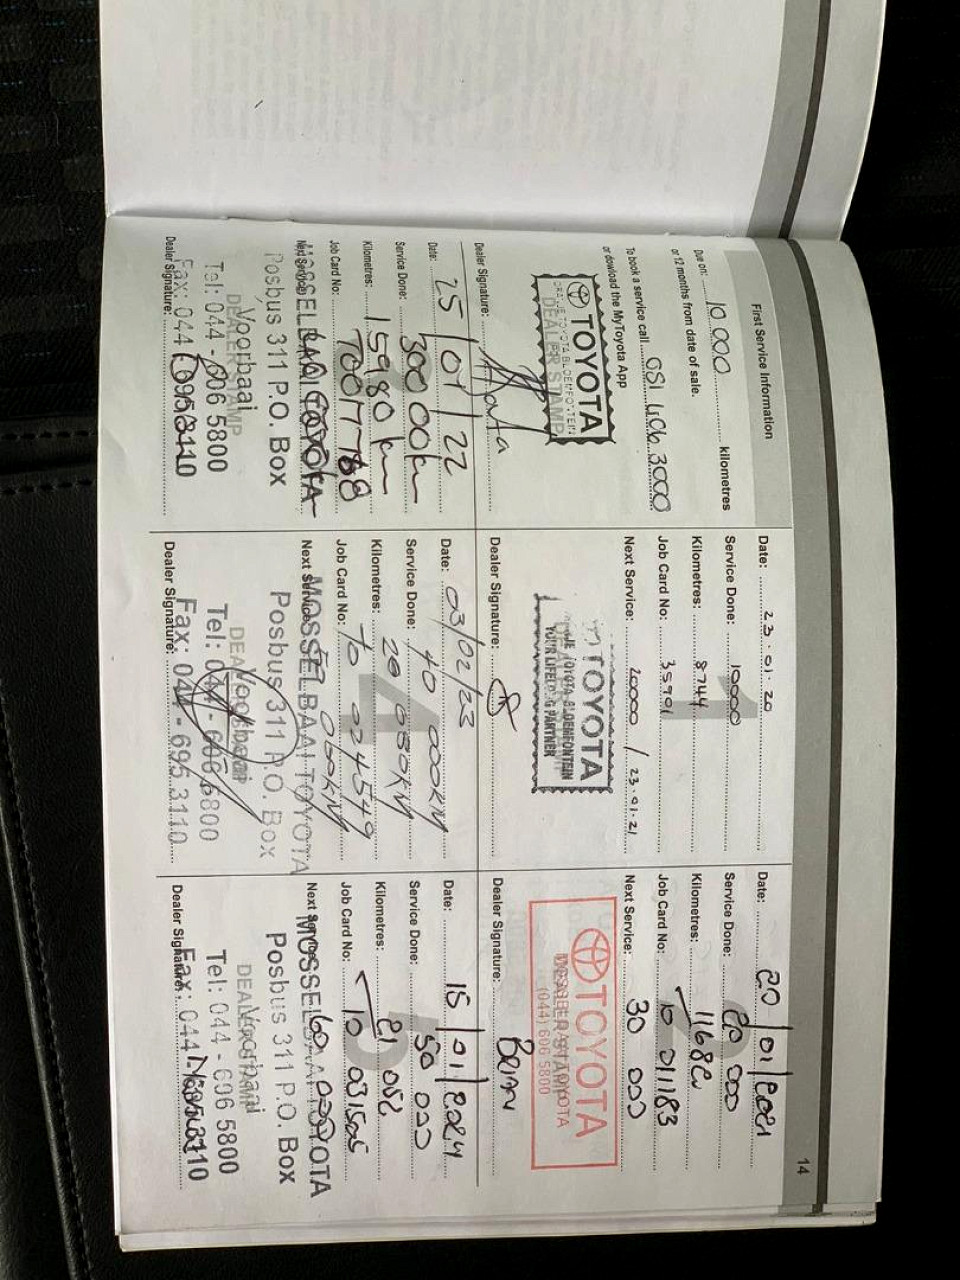 14
First Service Information
Due on: 10 000 kilometres
or 12 months from date of sale.
To book a service call 051 406 3000
or dowload the MyToyota App
TOYOTA
TOYOTA BLOEMFONTEIN
DEALER STAMP
Dealer Signature:
1
Date: 23.01.20
Service Done: 10000
Kilometres: 8744
Job Card No: 35901
Next Service: 20000 / 23.01.21
TOYOTA
TOYOTA BLOEMFONTEIN
YOUR LIFELONG PARTNER
Dealer Signature:
Date: 20/01/2021
Service Done: 20 000
Kilometres:
Job Card No: 10 011183
Next Service: 30 000
TOYOTA
DEALER STAMP
(044) 606 5800
Dealer Signature: Brian
Date: 25/01/22
Service Done: 30000km
Kilometres: 15980km
Job Card No:
Next Service:
MOSSELBAAI TOYOTA
Posbus 311 P.O. Box
Voorbaai
DEALER STAMP
Tel: 044 - 606 5800
Fax: 044 - 695 3110
Dealer Signature:
4
Date: 03/02/23
Service Done: 40 000KM
Kilometres:
Job Card No: 70 024549
Next Service: 060KM
MOSSELBAAI TOYOTA
Posbus 311 P.O. Box
Voorbaai
Tel: 044 - 606 5800
Fax: 044 - 695 3110
Dealer Signature:
5
Date: 15/01/2024
Service Done: 50 000
Kilometres: 21 052
Job Card No: 10 031505
Next Service: 60 000
MOSSELBAAI TOYOTA
Posbus 311 P.O. Box
Voorbaai
DEALER STAMP
Tel: 044 - 606 5800
Fax: 044 - 695 3110
Dealer Signature: